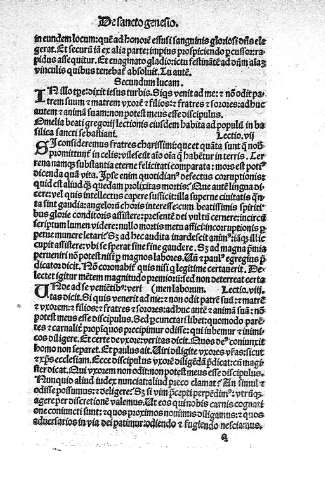 De sancto genesio.
in eundem locum: que ad honorē effusi sanguinis gloriose dn̄s elegerat. Et securū
ex alia parte impius prospiciendo percussor rapidus assequitur. Et euaginato gladio: ictu festinātē ad
vinculis quibus tenebat absoluit. Tu autē.
Secundum lucam.
IN illo tp̄e: dixit iesus turbis. Siqs venit ad me: ⁊ nō odit patrem suum ⁊ matrem vxorē ⁊ filios: fratres ⁊ sorores: adhuc
autem ⁊ animā suam: non potest meus esse discipulus.
Omelia beati gregorij lectionis eiusdem habita ad populū in basilica sancti sebastiani. Lectio. vij
SI consideremus fratres charissimi: que et quāta sunt q̄ nob̄
promittunt̄ in celis: vilescūt aīo oīa q̄ habent̄ur in terris. Terrena nanq̄ substantia eterne felicitati comparata: mors est potius
dicenda quā vita. Ipse enim quotidian⁹ defectus corruptionis:
quid est aliud q̄ quedam prolixitas mortis: Que autē lingua dicere: vel quis intellectus capere sufficit: illa superne ciuitatis q̄nta sint gaudia: angelorū choris interesse: cum beatissimis spiritibus glorie conditoris assistere: presentē dei vultū cernere: incircūscriptum lumen videre: nullo mortis metu affici: incorruptionis perpetue munere letari: Sz ad hec audita inardescit anim⁹: iāq̄ illic cupit assistere: vbi se sperat sine fine gaudere. Sz ad magna p̄mia
peruenirī nō potest nisi p̱ magnos labores. Uñ ⁊ paul⁹ egregius p̄dicator dicit. Nō coronabit̄ quis nisi q̄ legitime certauerit. Delectet igitur mētem magnitudo premioꝝ: sed non deterreat certamen laborum. Lectio. viij.
Unde ad se veniētib⁹: veritas dicit. Si quis venerit ad me: ⁊ non odit patrē suū: ⁊ matrē
⁊ vxorem: ⁊ filios: ⁊ fratres ⁊ sorores: adhuc autē ⁊ animā suā: nō
potest meus esse discipulus. Sed p̱cunctari libet: quomodo parētes ⁊ carnali p̱pinquos precipimur odisse: qui iubemur ⁊ inimicos diligere. Et certe de vxore: veritas dicit. Quos de⁹ coniunxit
homo non separet. Et paulus ait. Uiri diligite vxores vras: sicut
⁊ xp̄s ecclesiam. Ecce discipulus vxorē diligēdā p̄dicat: cū magister dicat. Qui vxorem non odit: non potest meus esse discipulus.
Nunquid aliud iudex nunciat: aliud preco clamat? An simul ⁊
odisse possumus: ⁊ diligere: Sz si vim p̄cepti perpēdim⁹: vtrūq̄
agere per discretionē valemus. Ut eos qui nobis carnis cognatione coniuncti sunt: ⁊ quos proximos nouimus diligamus: ⁊ quos
aduersarios in via dei patimur: odiendo ⁊ fugiendo nesciamus.
q